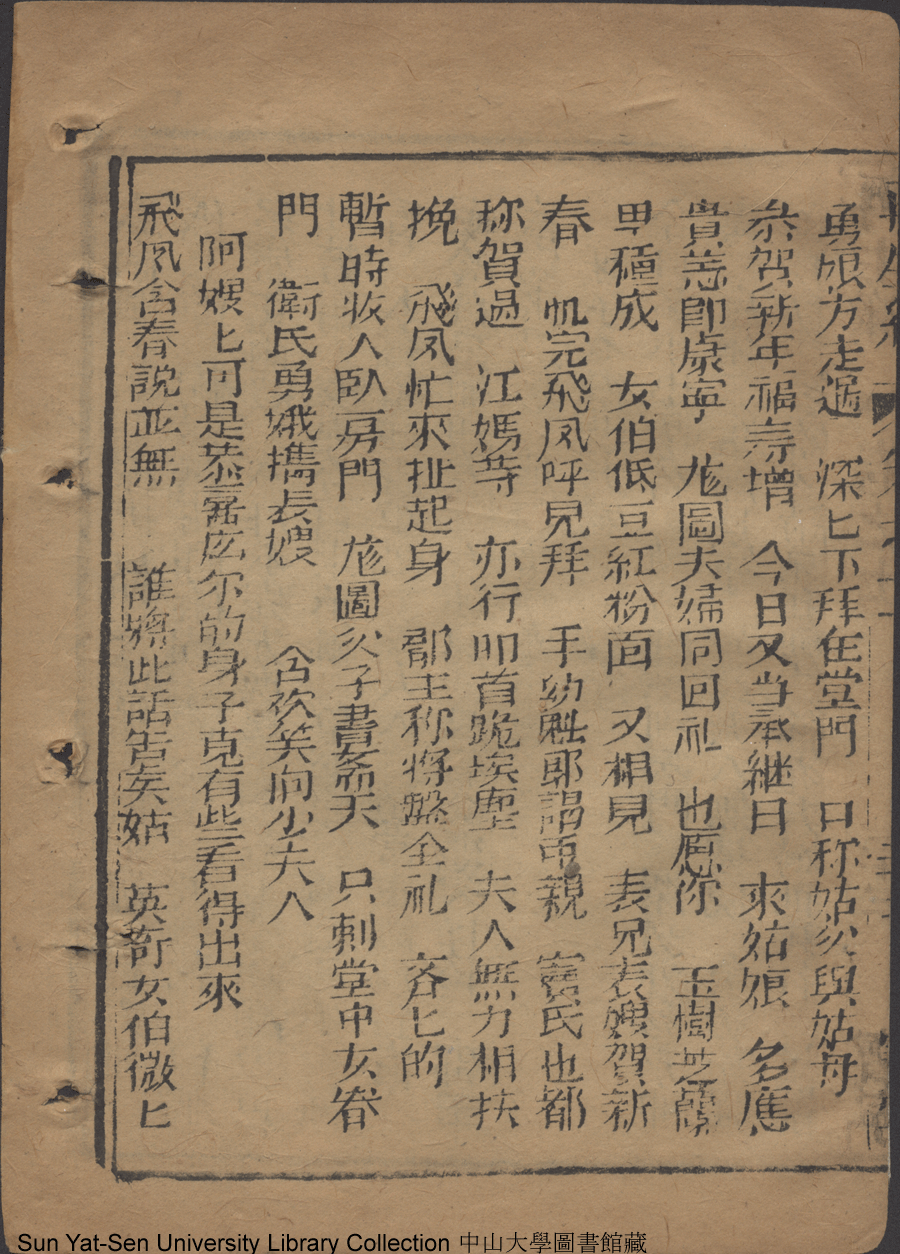 勇娘方走過　深匕下拜在堂門　口称姑父與姑母
恭賀新年福壽增　今日又当承継日　來姑娘　多應
貴恙即康寧　尨圖夫婦同回礼　也愿你　玉樹芝蘭
甲種成　女伯低豆紅粉面　又相見　表兄表嫂賀新
春　帆完飛凤呼見拜　手幼　耶謂中親　竇氏也都
称賀過　江媽等　亦行叩首跪埃塵　夫人無力相扶
挽　飛凤忙來扯起身　郡主称将盤仝礼　吝匕的
暫時收人臥房門　尨圖父子書斎天　只剌堂中女眷
門　衛氏勇娥携長嫂　含欢笑向少夫人
阿嫂匕可是恭喜庅尔的身子克有些看得出來
飛凤含春說並無　誰將此話告矣姑　英斎女伯微匕
Sun Yat-Sen University Library Collection 中山大學圖書館藏